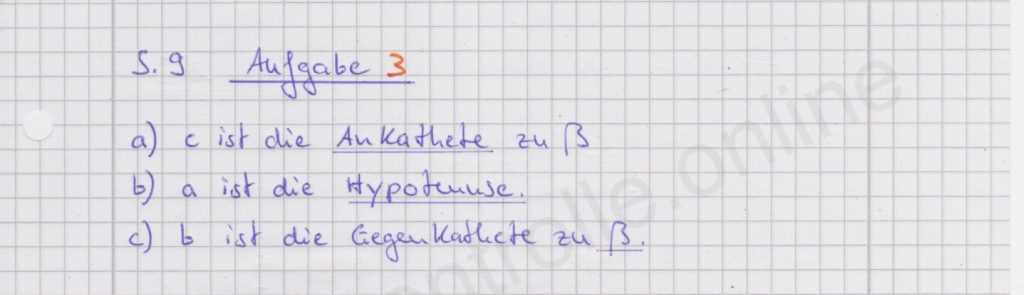 S. 9 Aufgabe 3
a) c ist die Ankathete zu β
b) a ist die Hypotenuse.
c) b ist die Gegenkathete zu β.
ntrolle.online